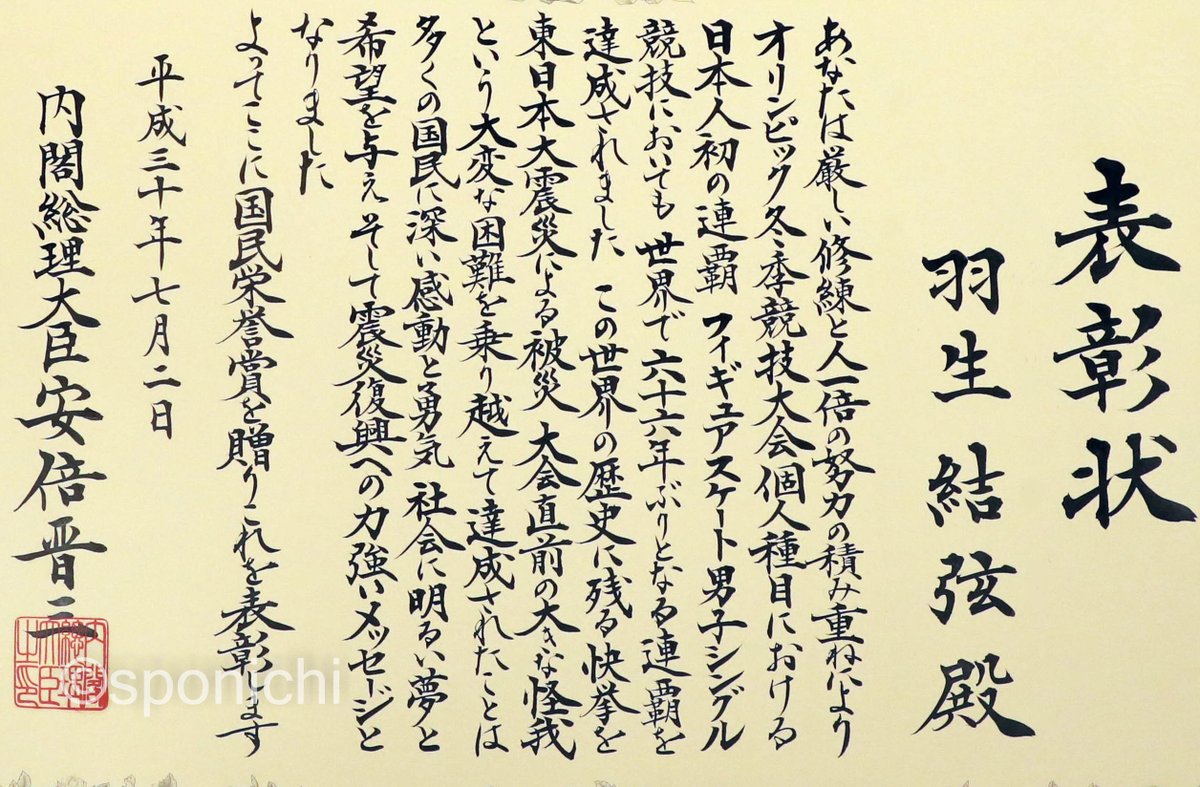 表彰状
羽生結弦殿
あなたは厳しい修練と人一倍の努力の積み重ねにより
オリンピック冬季競技大会個人種目における
日本人初の連覇 フィギュアスケート男子シングル
競技においても 世界で六十六年ぶりとなる連覇を
達成されました この世界の歴史に残る快挙を
東日本大震災による被災 大会直前の大きな怪我
という大変な困難を乗り越えて達成されたことは
多くの国民に深い感動と勇気 社会に明るい夢と
希望を与え そして震災復興への力強いメッセージと
なりました
よってここに国民栄誉賞を贈りこれを表彰します
平成三十年七月二日
内閣総理大臣安倍晋三
内閣総理大臣之印
©sponichi